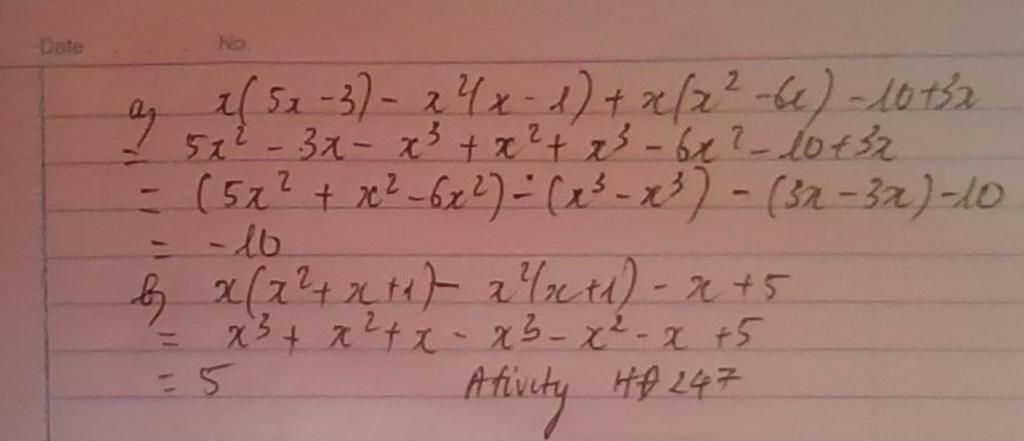 Date No.
a) x(5x-3) - x²(x-1) + x(x²-6x) -10+3x
= 5x² - 3x - x³ + x² + x³ - 6x² - 10+3x
= (5x² + x² -6x²) - (x³ - x³) - (3x - 3x) -10
= -10
b) x(x²+x+1) - x²(x+1) - x+5
= x³ + x² + x - x³ - x² - x +5
= 5 Ativity HĐ 247